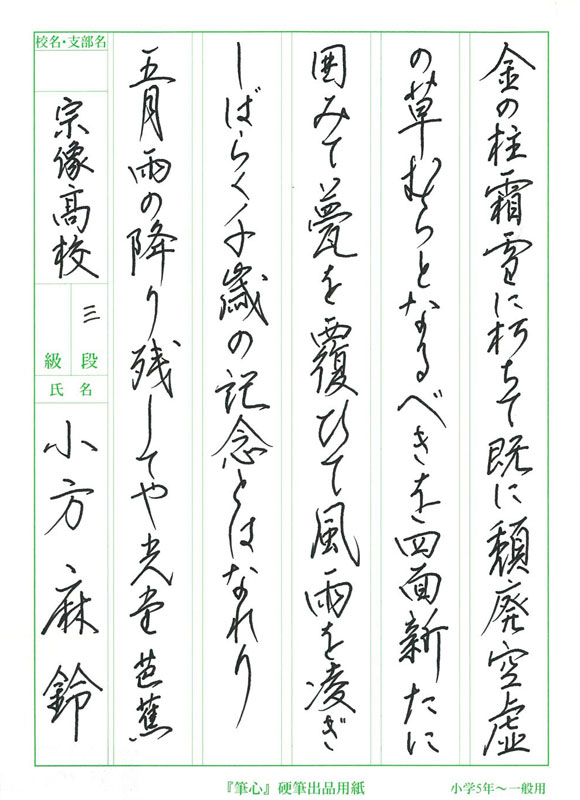 金の柱霜雪に朽ちて既に頽廃空虚
の草むらとなるべきを四面新たに
囲みて甍を覆ひて風雨を凌ぎ
しばらく千歳の記念とはなれり
五月雨の降り残してや光堂 芭蕉
校名・支部名
宗像高校
三
段
級
氏名
小方麻鈴
『筆心』硬筆出品用紙
小学5年～一般用